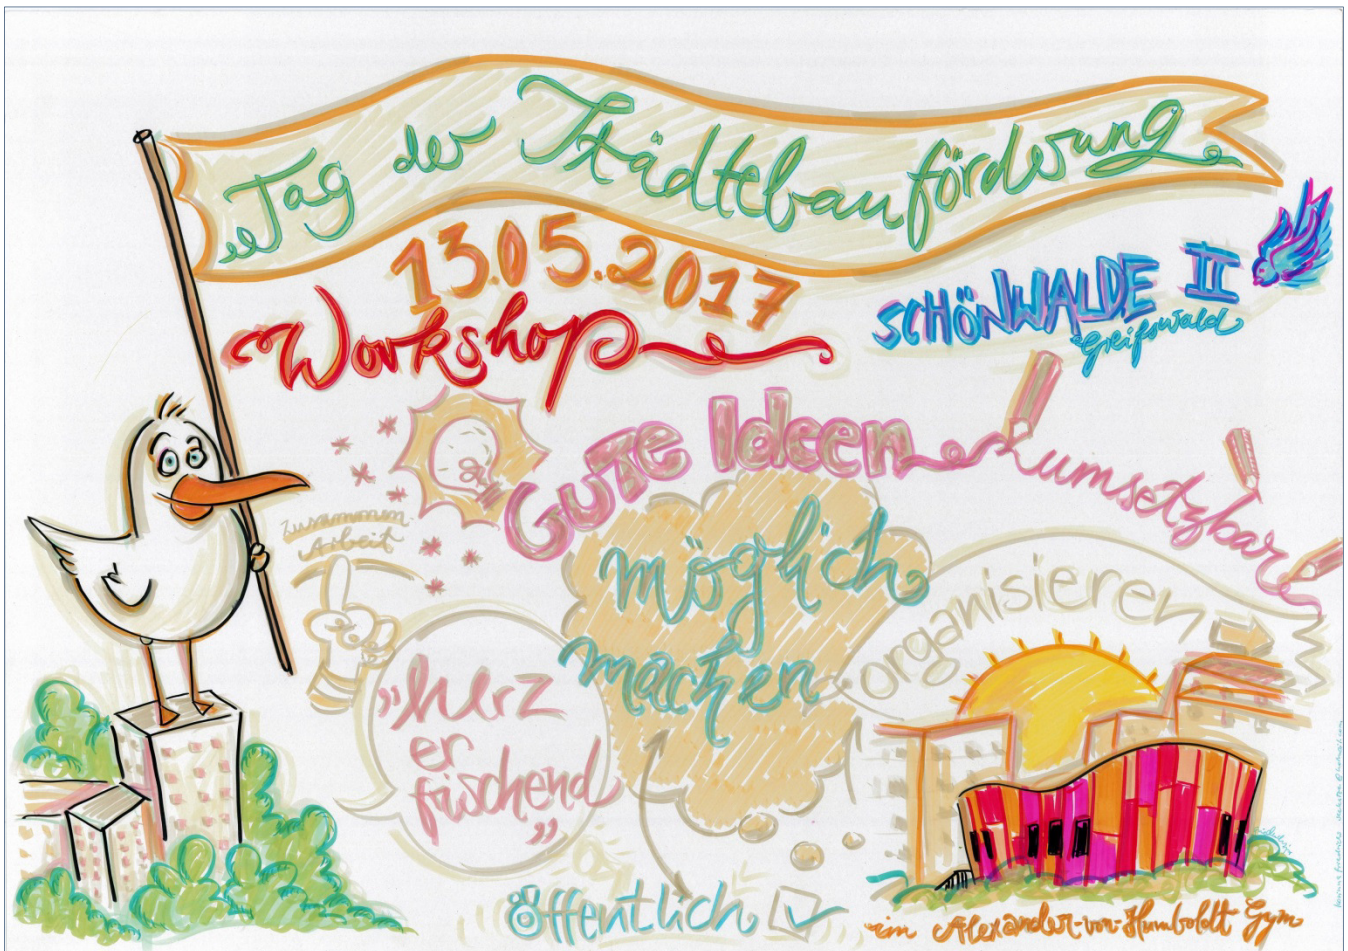 Tag der Städtebauförderung
13.05.2017
Workshop
SCHÖNWALDE II
Greifswald
GUTE Ideen
umsetzbar
möglich
machen
zusammen-
Arbeit
organisieren
„herz
er
fischend”
öffentlich
im Alexander-von-Humboldt Gym